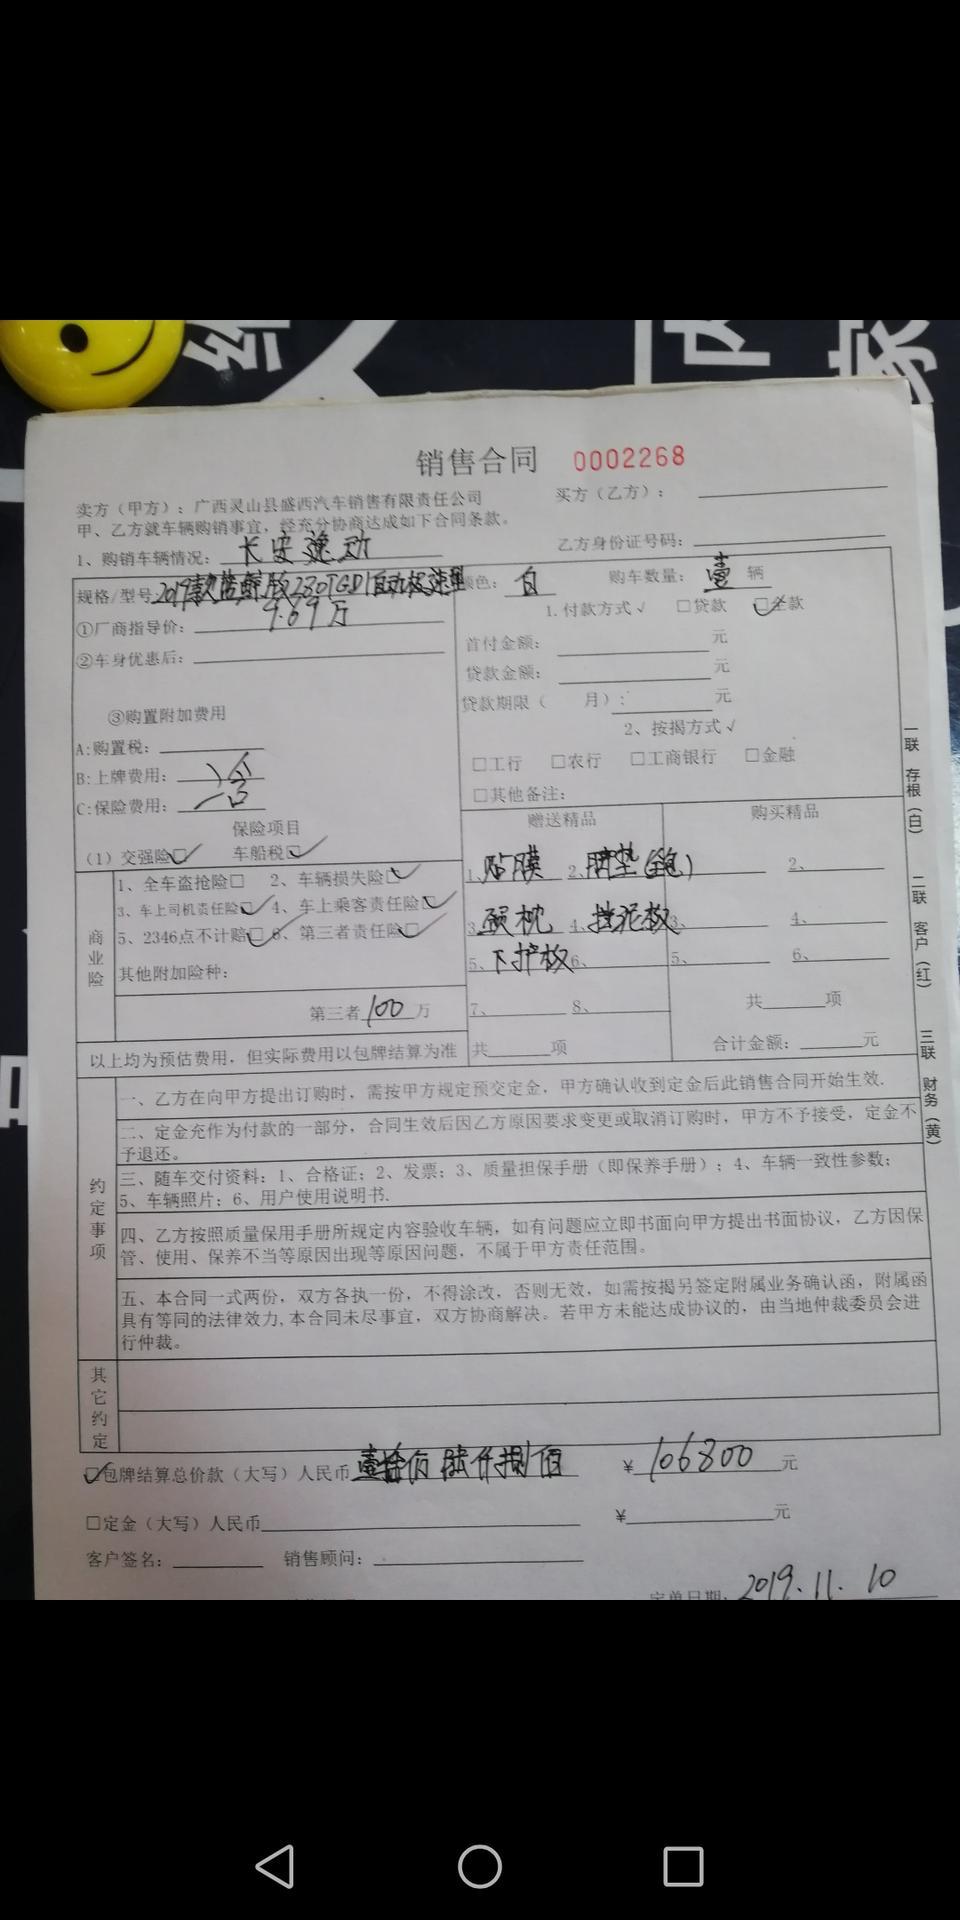 家
销售合同 0002268
卖方（甲方）：广西灵山县盛西汽车销售有限责任公司 买方（乙方）：
甲、乙方就车辆购销事宜，经充分协商达成如下合同条款。
1、购销车辆情况：长安逸动 乙方身份证号码：
规格/型号 2019款蓝鲸版230TGDI自动极速型 颜色：白 购车数量：壹 辆
①厂商指导价：9.69万 1.付款方式√ □贷款 □全款
②车身优惠后： 首付金额： 元
贷款金额： 元
③购置附加费用 贷款期限（ 月）： 元
A:购置税： 2、按揭方式√
B:上牌费用： □工行 □农行 □工商银行 □金融
C:保险费用： □其他备注：
保险项目 赠送精品 购买精品
（1）交强险□ 车船税□
商业险
1、全车盗抢险□ 2、车辆损失险□ 1、贴膜 2、脚垫(全包) 2、
3、车上司机责任险□ 4、车上乘客责任险□ 3、颈枕 4、挡泥板 3、 4、
5、2346点不计赔□ 6、第三者责任险□ 5、下护板 6、 5、 6、
其他附加险种：
第三者100万 7、 8、 共 项
以上均为预估费用，但实际费用以包牌结算为准 共 项 合计金额： 元
约定事项
一、乙方在向甲方提出订购时，需按甲方规定预交定金，甲方确认收到定金后此销售合同开始生效.
二、定金充作为付款的一部分，合同生效后因乙方原因要求变更或取消订购时，甲方不予接受，定金不
予退还。
三、随车交付资料：1、合格证；2、发票；3、质量担保手册（即保养手册）；4、车辆一致性参数；
5、车辆照片；6、用户使用说明书.
四、乙方按照质量保用手册所规定内容验收车辆，如有问题应立即书面向甲方提出书面协议，乙方因保
管、使用、保养不当等原因出现等原因问题，不属于甲方责任范围。
五、本合同一式两份，双方各执一份，不得涂改，否则无效，如需按揭另签定附属业务确认函，附属函
具有等同的法律效力,本合同未尽事宜，双方协商解决。若甲方未能达成协议的，由当地仲裁委员会进
行仲裁。
其它约定
□包牌结算总价款（大写）人民币 壹拾 陆仟捌佰 ￥106800元
□定金（大写）人民币 ￥ 元
客户签名： 销售顾问：
定单日期：2019.11.10
一联 存根（白）
二联 客户（红）
三联 财务（黄）